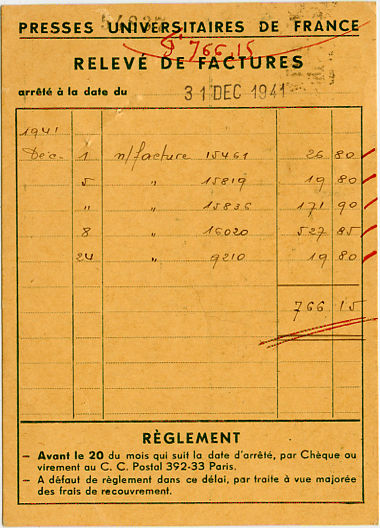 PRESSES UNIVERSITAIRES DE FRANCE
766.15
RELEVÉ DE FACTURES
arrêté à la date du 31 DEC 1941
1941
Déc. 1 n/facture 15461 26 80
5 " 15819 19 80
" " 15836 171 90
8 " 16020 527 85
24 " 9210 19 80
766 15
RÈGLEMENT
— Avant le 20 du mois qui suit la date d'arrêté, par Chèque ou
virement au C. C. Postal 392-33 Paris.
— A défaut de règlement dans ce délai, par traite à vue majorée
des frais de recouvrement.